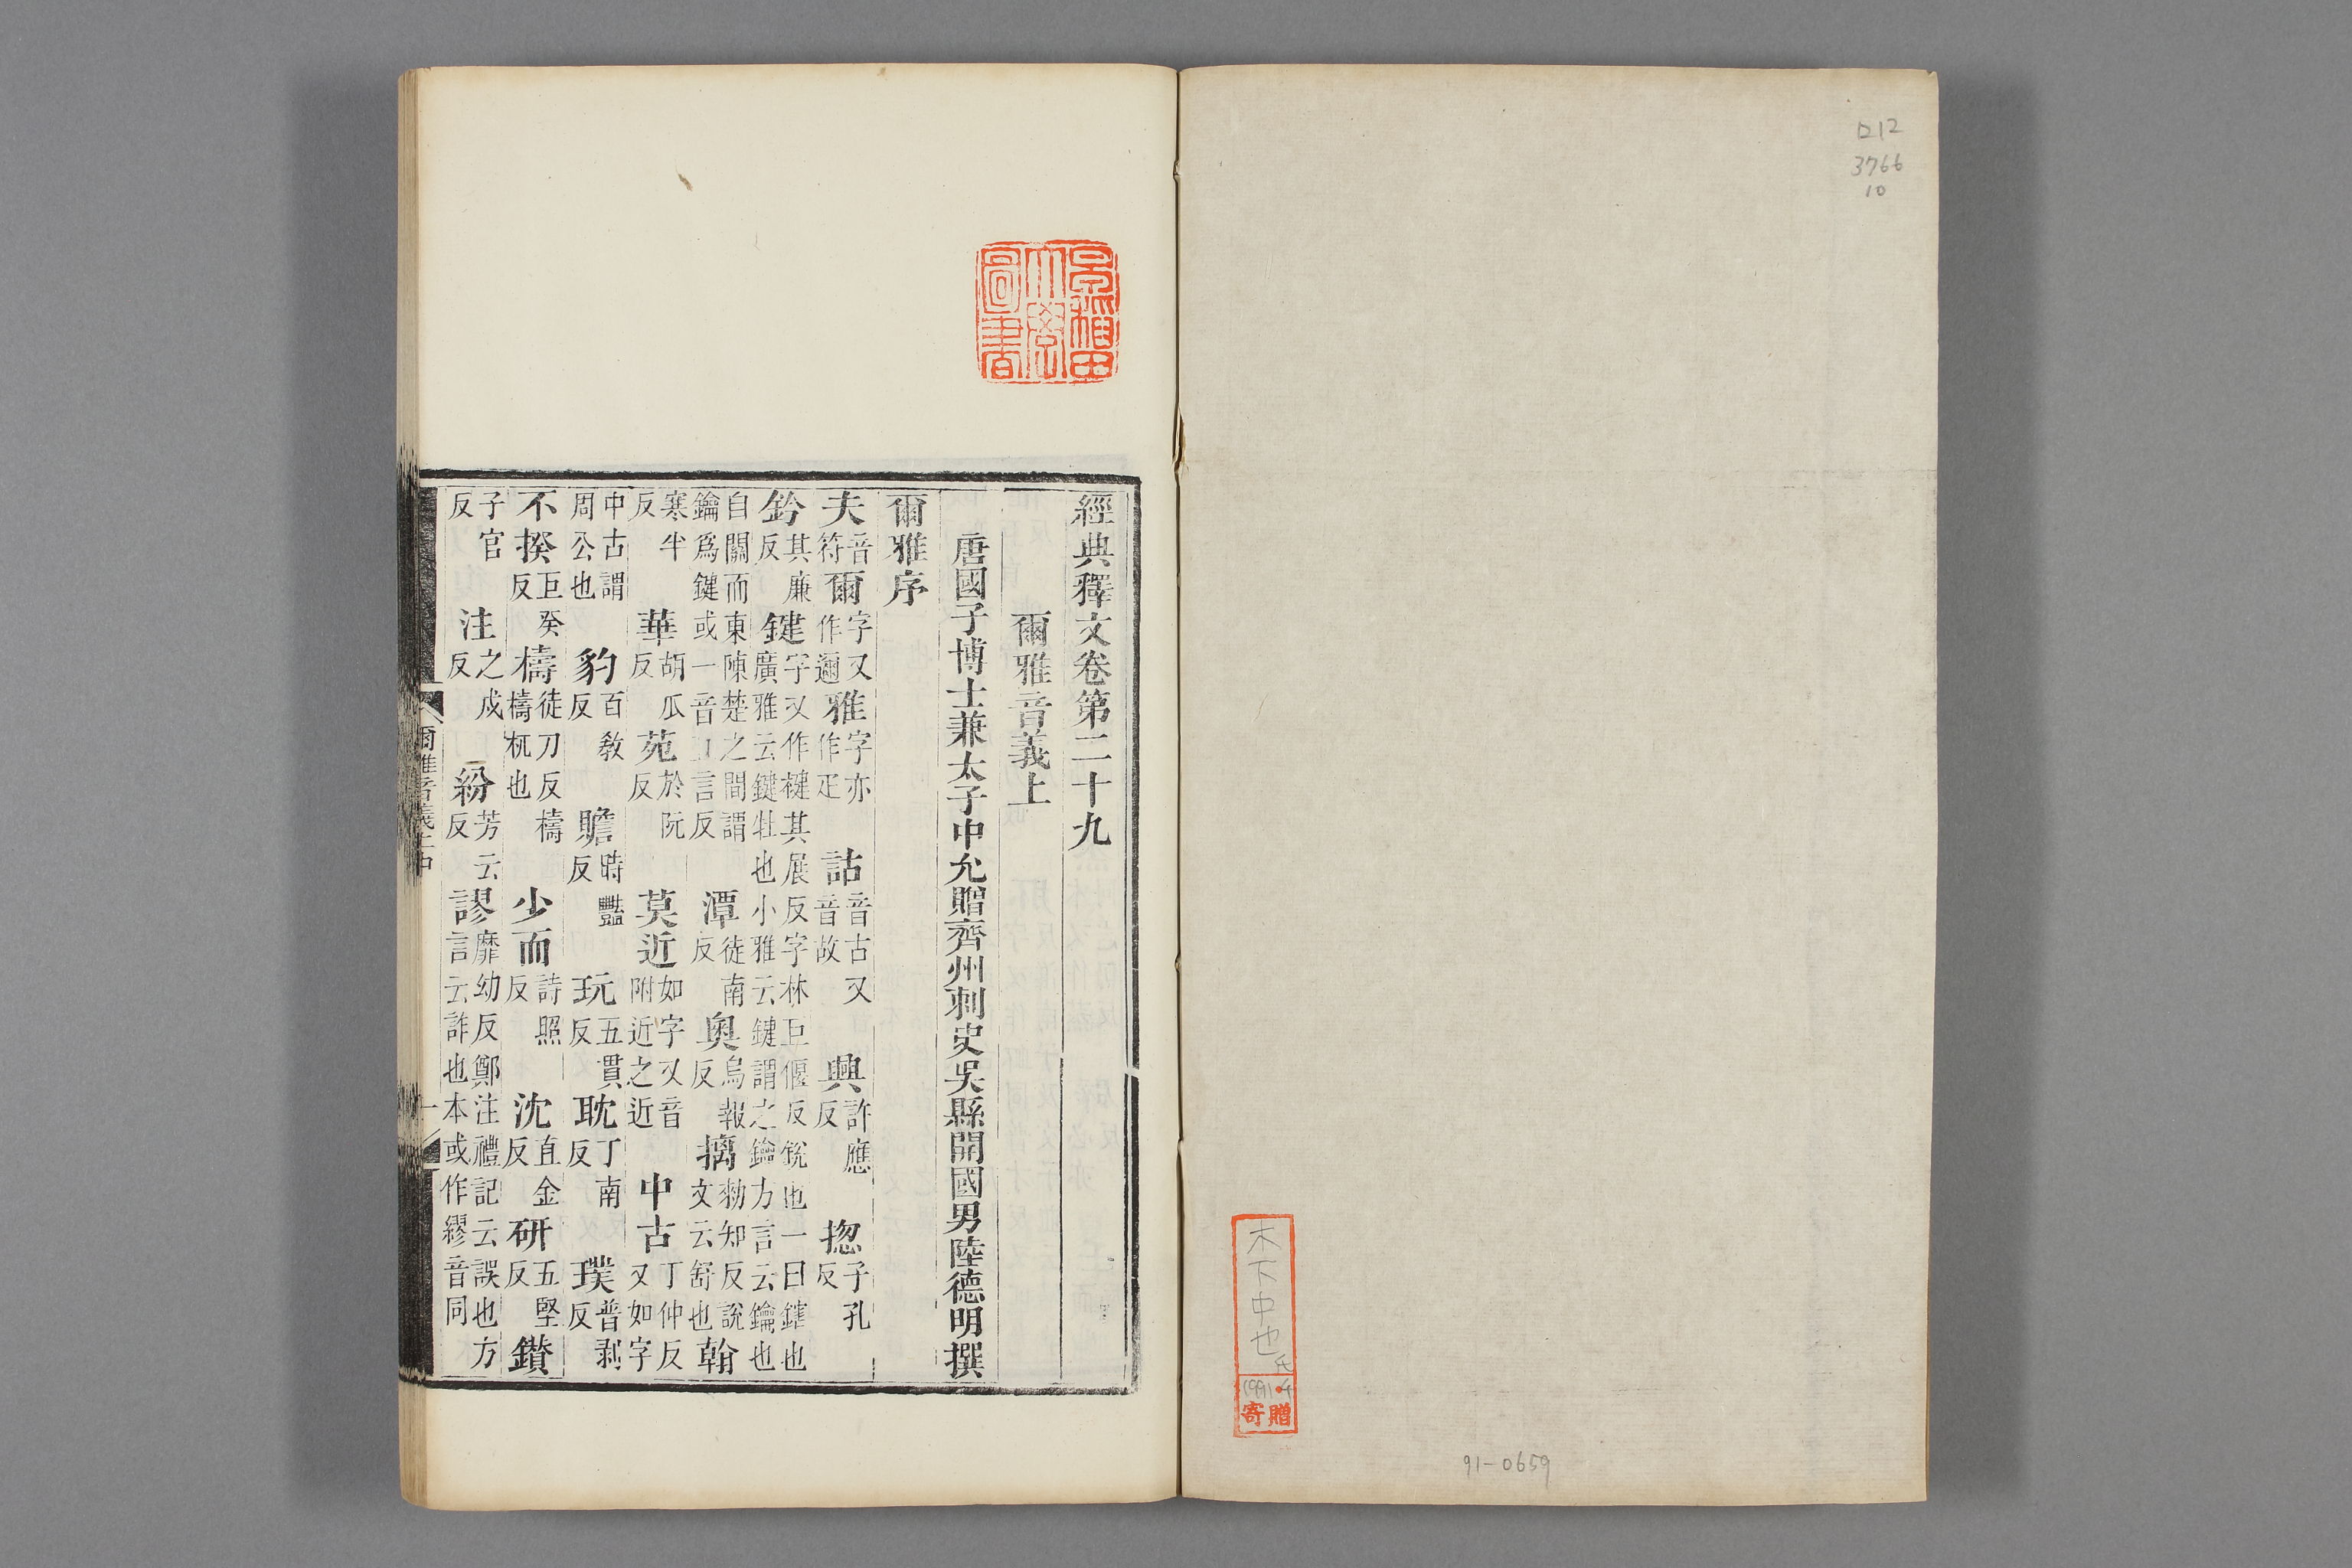 ロ12
3766
10
木下中也氏
1991.4
寄贈
91-0659
早稲田大學圖書
經典釋文卷第二十九
爾雅音義上
唐國子博士兼太子中允贈齊州刺史吳縣開國男陸德明撰
爾雅序
夫音符爾字又作邇雅字亦作疋詁音古又音故興許應反揔子孔反
鈐其廉反鍵字又作楗其展反字林巨偃反銳也一曰鎋也廣雅云鍵牡也小雅云鍵謂之鑰方言云鑰也
自關而東陳楚之間謂鑰爲鍵或一音言反潭徒南反奧烏報反摛勑知反說文云舒也翰
寒半反華胡瓜反苑於阮反莫近如字又音附近之近中古丁仲反又如字
中古謂周公也豹百敎反贍時豔反玩五貫反耽丁南反璞普剥反
不揆巨癸反檮徒刀反檮檮杌也少而詩照反沈直金反研五堅反鑽
子官反注之戍反紛芳云反謬靡幼反鄭注禮記云誤也方言云詐也本或作繆音同
爾雅音義上中
一